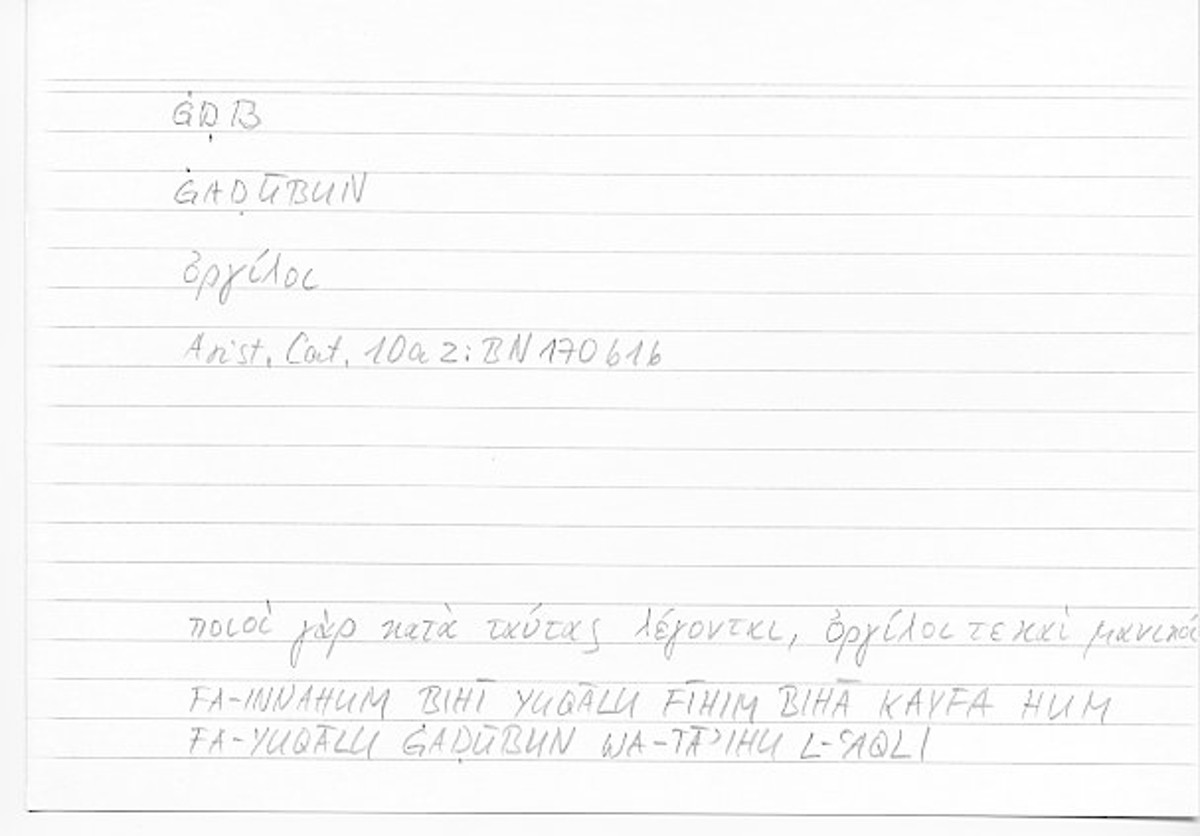 ĠḌB
ĠAḌŪBUN
ὀργίλοι
Arist. Cat. 10a 2; BN 170b16
ποιοὶ γὰρ κατὰ ταύτας λέγονται, ὀργίλοι τε καὶ μανικοὶ
FA-INNAHUM BIHĪ YUQĀLU FĪHIM BIHĀ KAYFA HUM
FA-YUQĀLU ĠAḌŪBUN WA-TĀʾIHU L-ʿAQLI